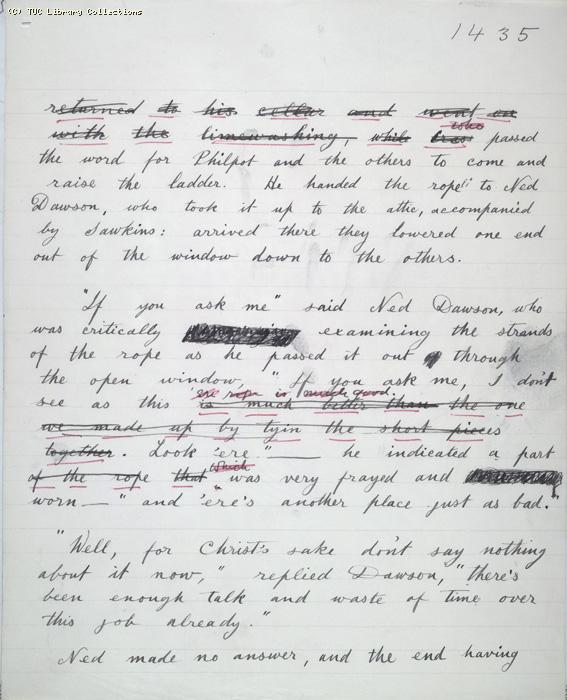 (C) TUC Library Collections
1435
returned to his cellar and went on
who
with the limewashing, while Crass passed
the word for Philpot and the others to come and
raise the ladder. He handed the rope to Ned
Dawson, who took it up to the attic, accompanied
by Sawkins: arrived there they lowered one end
out of the window down to the others.
"If you ask me" said Ned Dawson, who
was critically examining the strands
of the rope as he passed it out through
the open window, "If you ask me, I don't
'ere rope is much good.
see as this is much better than the one
we made up by tyin the short pieces
together. Look 'ere." — he indicated a part
which
of the rope that was very frayed and
worn — "and 'ere's another place just as bad.
"Well, for Christ's sake don't say nothing
about it now," replied Dawson, "there's
been enough talk and waste of time over
this job already."
Ned made no answer, and the end having